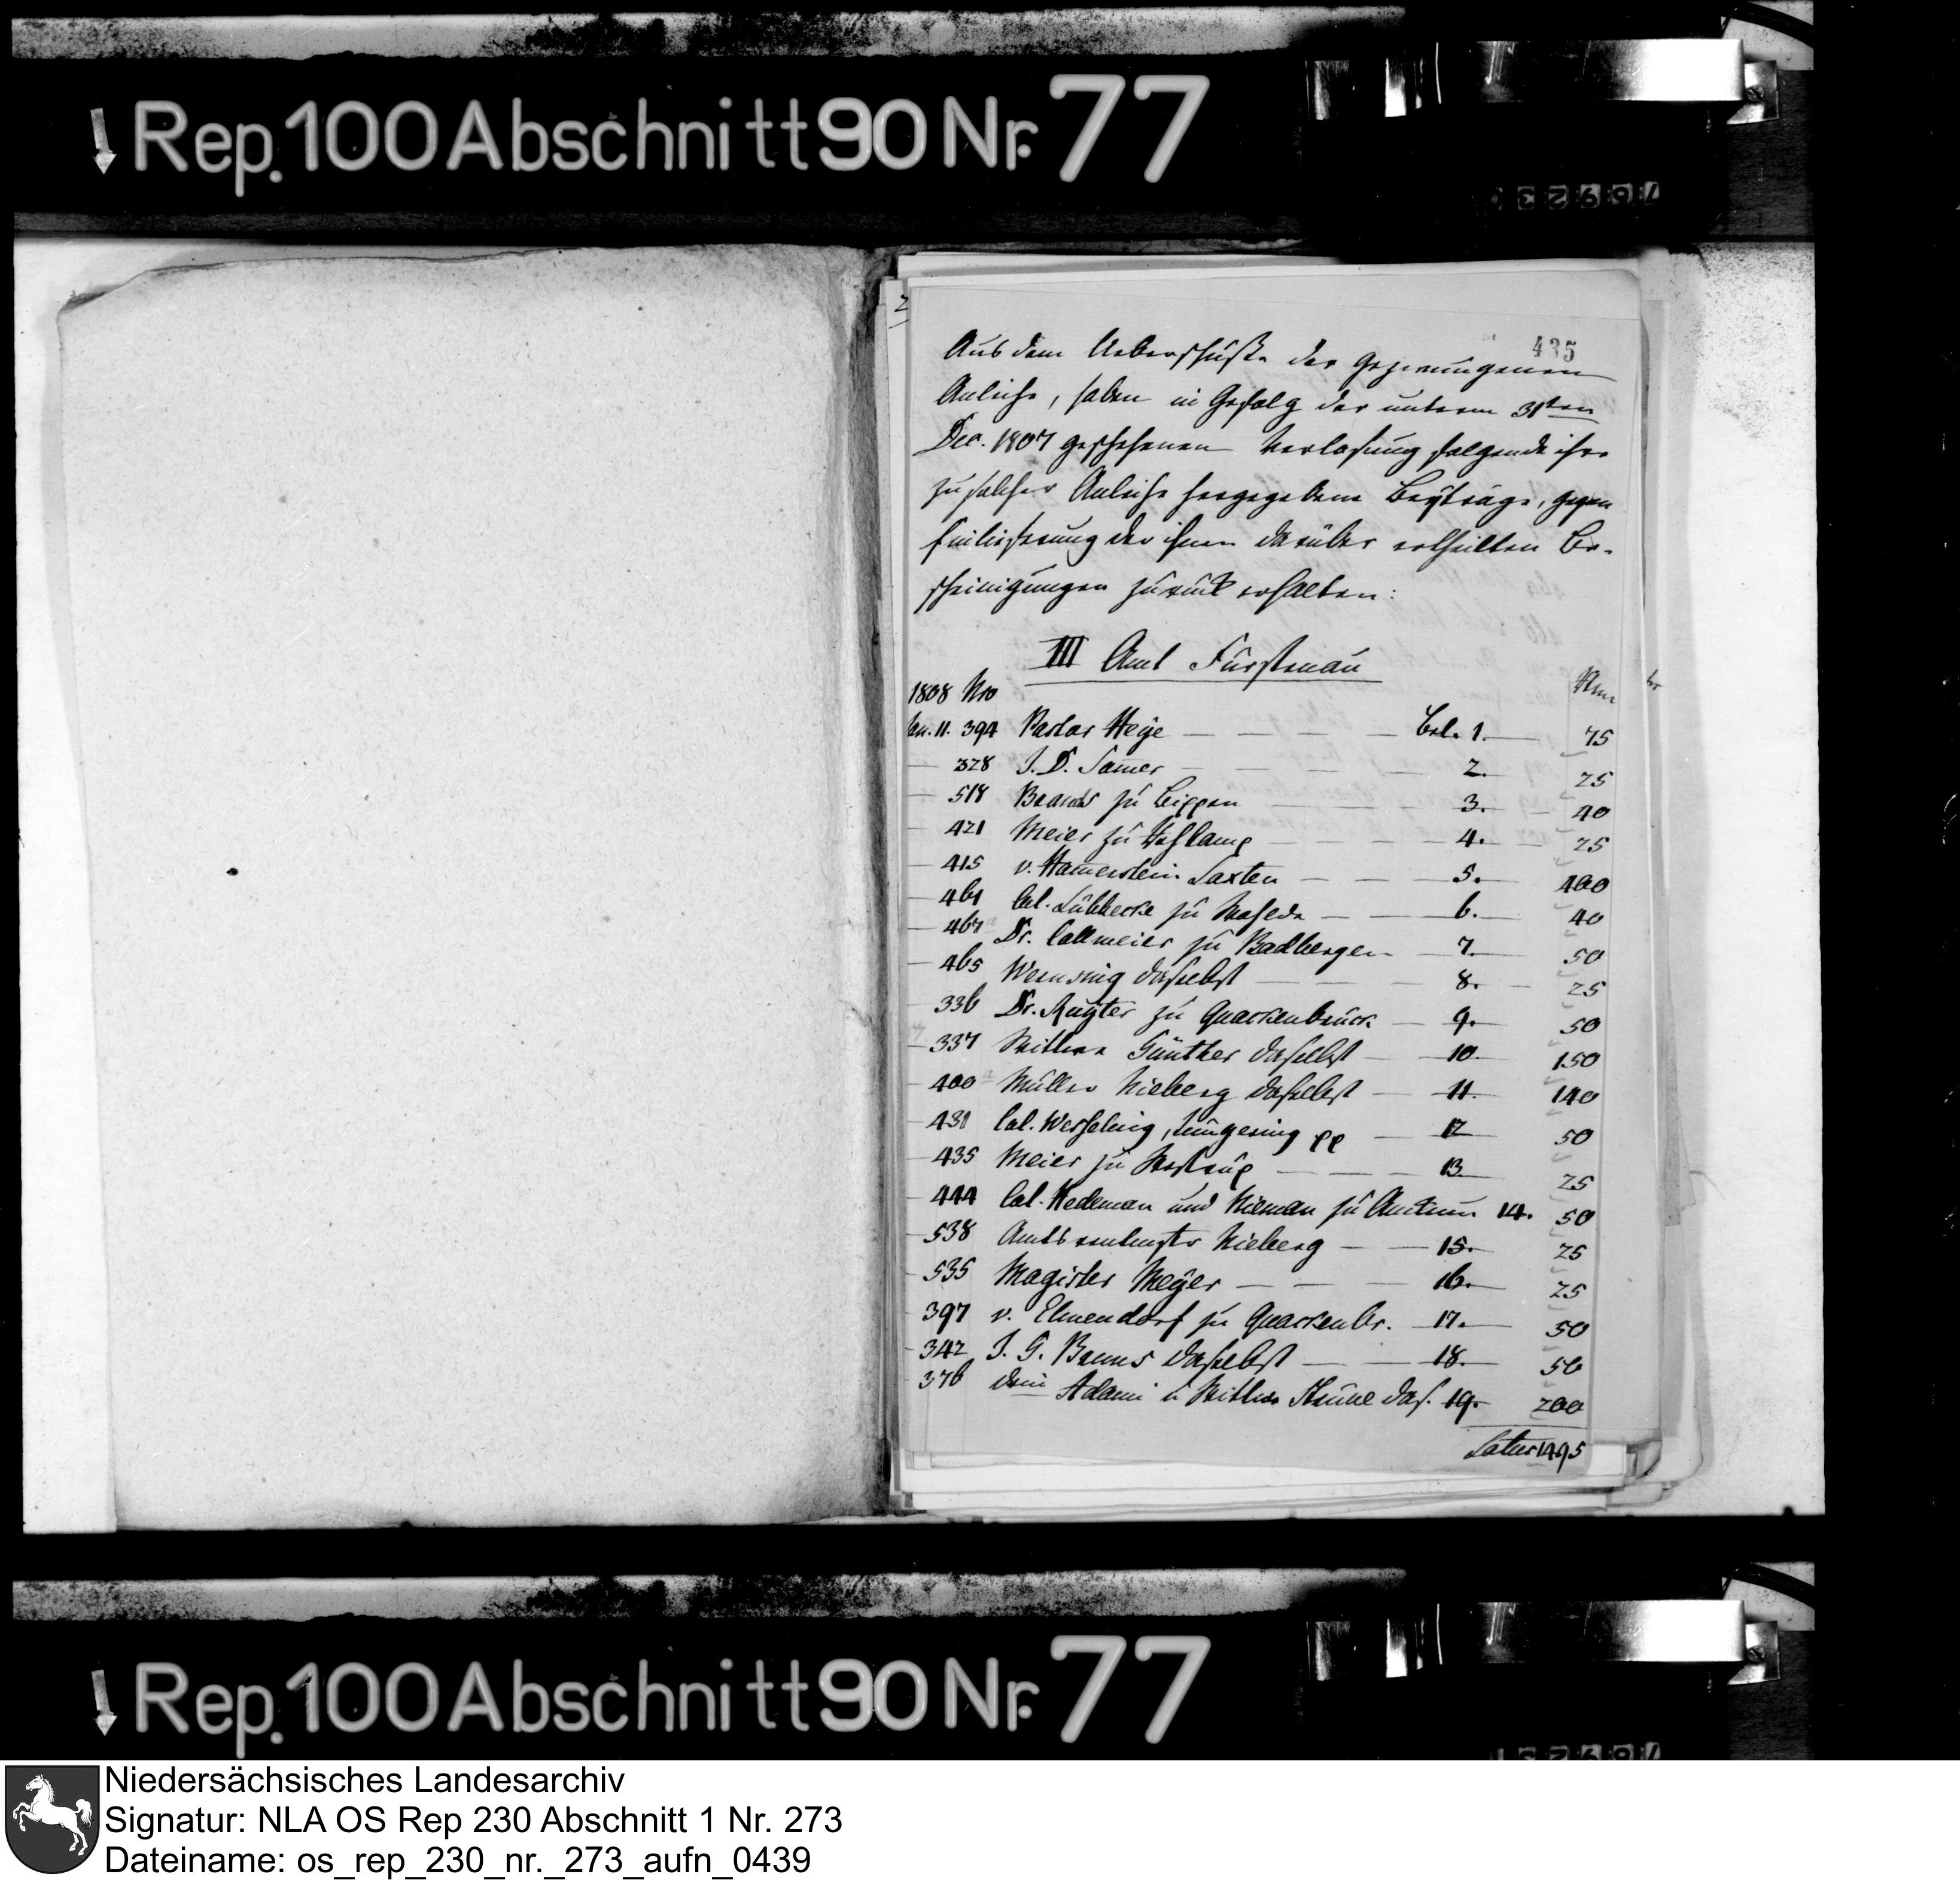 Rep. 100 Abschnitt 90 Nr. 77
76923
435
Aus dem Ueberschuße der gezwungenen
Anleihe, haben in Gefolg der unterm 31ten
Dec. 1807 geschehenen Verlosung folgende ihre
zu solcher Anleihe hergegebene Beyträge, gegen
Einlieferung der ihnen darüber ertheilten Be-
scheinigungen zurück erhalten:
III Amt Fürstenau
1808 Nro
Jan. 11. 394 Pastor Heye — Bel. 1. 75
328 J. D. Samer 2. 25
518 zu Bippen 3. 40
421 Meier zu 4. 25
415 v. Hamerstein Loxten 5. 400
461 Col. Lübbecke zu 6. 40
467 Dr. Collmeier zu Badbergen 7. 50
465 daselbst 8. 25
336 Dr. Ruyter zu Quackenbrück 9. 50
337 Wittwe Günther daselbst 10. 150
400 Müller Nieberg daselbst 11. 140
431 Col. Wesseling, pp 12 50
435 Meier zu 13. 25
444 Col. Wedeman und Nieman zu 14. 50
538 Amtsrentmstr Nieberg 15. 25
535 Magister Meyer 16. 25
397 v. Elmendorf zu Quackenbr. 17. 50
342 J. G. daselbst 18. 50
376 Adami u Wittwe das. 19. 200
Latus 1495
Rep. 100 Abschnitt 90 Nr. 77
Niedersächsisches Landesarchiv
Signatur: NLA OS Rep 230 Abschnitt 1 Nr. 273
Dateiname: os_rep_230_nr._273_aufn_0439